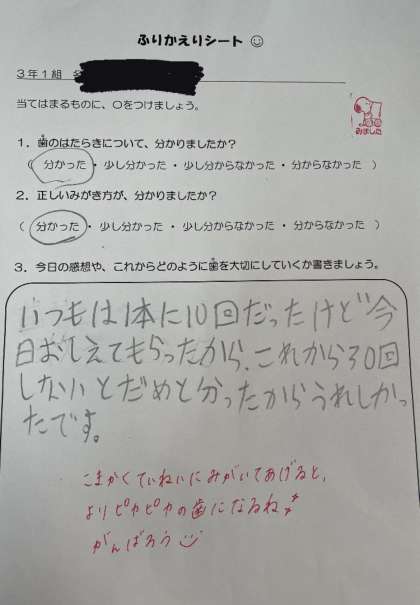 ふりかえりシート ☺
3年1組
当てはまるものに、○をつけましょう。
みました
1．歯のはたらきについて、分かりましたか？
（ 分かった ・ 少し分かった ・ 少し分からなかった ・ 分からなかった ）
2．正しいみがき方が、分かりましたか？
（ 分かった ・ 少し分かった ・ 少し分からなかった ・ 分からなかった ）
3．今日の感想や、これからどのように歯を大切にしていくか書きましょう。
いつもは1本に10回だったけど今
日おしえてもらったから、これから30回
しないとだめと分ったからうれしかっ
たです。
こまかくていねいにみがいてあげると、
よりピカピカの歯になるね
がんばろう